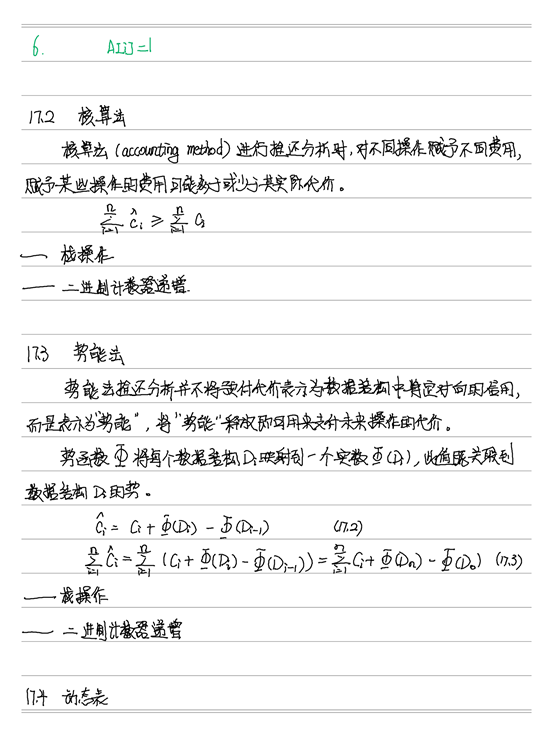 6. A[i]=1
17.2 核算法
核算法 (accounting method) 进行摊还分析时,对不同操作赋予不同费用,
赋予某些操作的费用可能多于或少于其实际代价。
∑_{i=1}^{n} ĉ_i ≥ ∑_{i=1}^{n} c_i
— 栈操作
— 二进制计数器递增
17.3 势能法
势能法摊还分析并不将预付代价表示为数据结构中特定对向的信用,
而是表示为"势能",将"势能"释放即可用来支付未来操作的代价。
势函数 Φ 将每个数据结构 D_i 映射到一个实数 Φ(D_i),此值即关联到
数据结构 D_i 的势。
ĉ_i = c_i + Φ(D_i) - Φ(D_{i-1}) (17.2)
∑_{i=1}^{n} ĉ_i = ∑_{i=1}^{n} (c_i + Φ(D_i) - Φ(D_{i-1})) = ∑_{i=1}^{n} c_i + Φ(D_n) - Φ(D_0) (17.3)
— 栈操作
— 二进制计数器递增
17.4 动态表